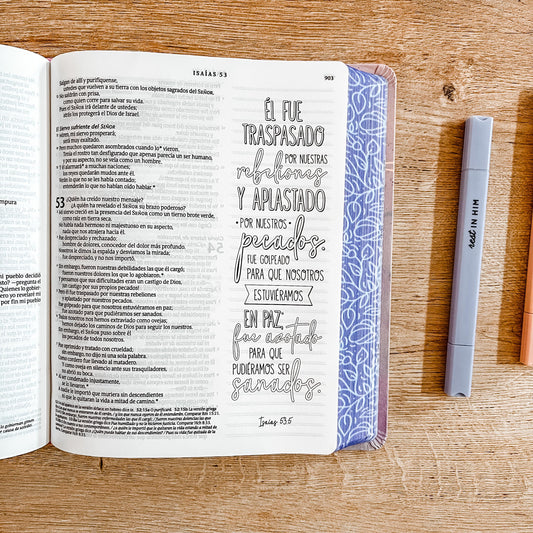 ISAÍAS 53
903
Salgan de allí y purifíquense,
ustedes que vuelven a su tierra con los objetos sagrados del SEÑOR.
No saldrán con prisa,
como quien corre para salvar su vida.
Pues el SEÑOR irá delante de ustedes,
atrás los protegerá el Dios de Israel.
El Siervo sufriente del SEÑOR
Miren, mi siervo prosperará;
será muy exaltado.
Pero muchos quedaron asombrados cuando lo* vieron.
Tenía el rostro tan desfigurado que apenas parecía un ser humano,
y por su aspecto, no se veía como un hombre.
Y él alarmará* a muchas naciones;
los reyes quedarán mudos ante él.
Verán lo que no se les había contado;
entenderán lo que no habían oído hablar.*
53 ¿Quién ha creído nuestro mensaje?
¿A quién ha revelado el SEÑOR su brazo poderoso?
Mi siervo creció en la presencia del SEÑOR como un tierno brote verde;
como raíz en tierra seca.
No había nada hermoso ni majestuoso en su aspecto,
nada que nos atrajera hacia él.
Fue despreciado y rechazado:
hombre de dolores, conocedor del dolor más profundo.
Nosotros le dimos la espalda y desviamos la mirada;
fue despreciado, y no nos importó.
Sin embargo, fueron nuestras debilidades las que él cargó;
fueron nuestros dolores los que lo agobiaron.*
Y pensamos que sus dificultades eran un castigo de Dios,
¡un castigo por sus propios pecados!
Pero él fue traspasado por nuestras rebeliones
y aplastado por nuestros pecados.
Fue golpeado para que nosotros estuviéramos en paz;
fue azotado para que pudiéramos ser sanados.
Todos nosotros nos hemos extraviado como ovejas;
hemos dejado los caminos de Dios para seguir los nuestros.
Sin embargo, el SEÑOR puso sobre él
los pecados de todos nosotros.
Fue oprimido y tratado con crueldad;
sin embargo, no dijo ni una sola palabra.
Como cordero fue llevado al matadero.
Y como oveja en silencio ante sus trasquiladores,
no abrió su boca.
Al ser condenado injustamente,
se lo llevaron.*
A nadie le importó que muriera sin descendientes
ni que le quitaran la vida a mitad de camino.*
ÉL FUE
TRASPASADO
POR NUESTRAS
rebeliones
Y APLASTADO
POR NUESTROS
pecados.
FUE GOLPEADO
PARA QUE NOSOTROS
ESTUVIÉRAMOS
EN PAZ;
fue azotado
PARA QUE
PUDIÉRAMOS SER
sanados.
Isaías 53:5
rest IN HIM